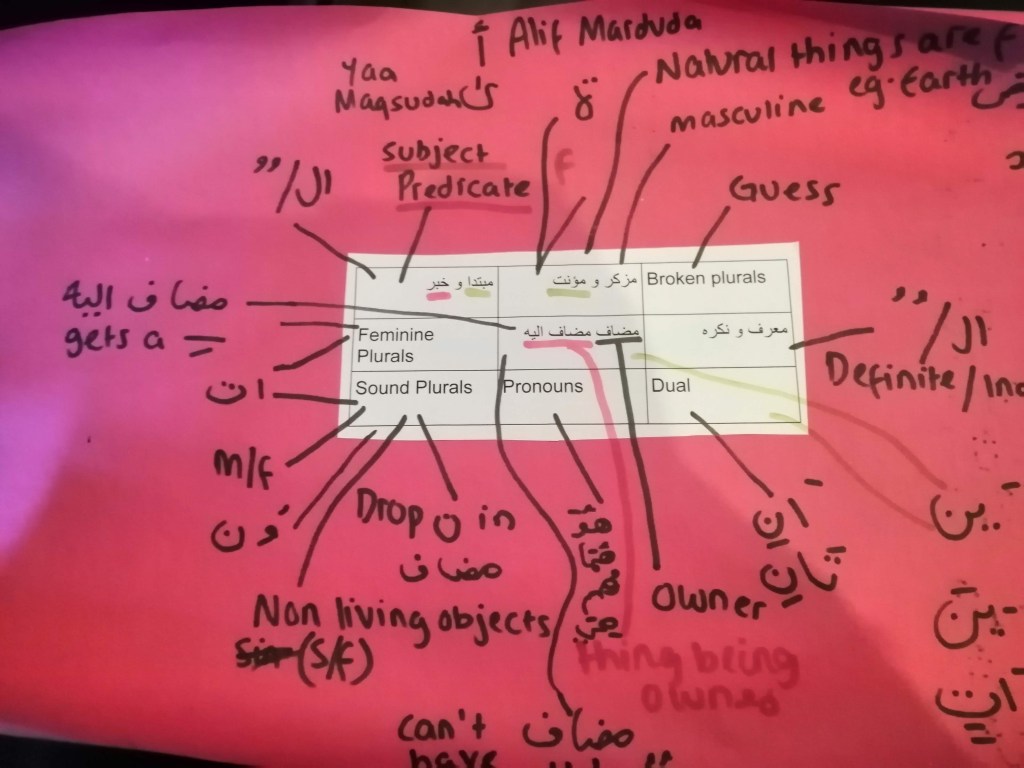 أ Alif Marduda
Yaa
Maqsudah
ة
Natural things are f
eg. Earth
masculine
f
subject
Predicate
ال/
Guess
مبتدا و خبر
مزكر و مؤنت
Broken plurals
Feminine
Plurals
مضاف مضاف اليه
معرف و نكره
Sound Plurals
Pronouns
Dual
مضاف اليه
gets a
ات
m/f
ون
Drop ن in
مضاف
Non living objects
(S/f)
Owner
thing being
owned
can't
have
مضاف
ال/
Definite/Ind
ان
تان
ين
تين
ات